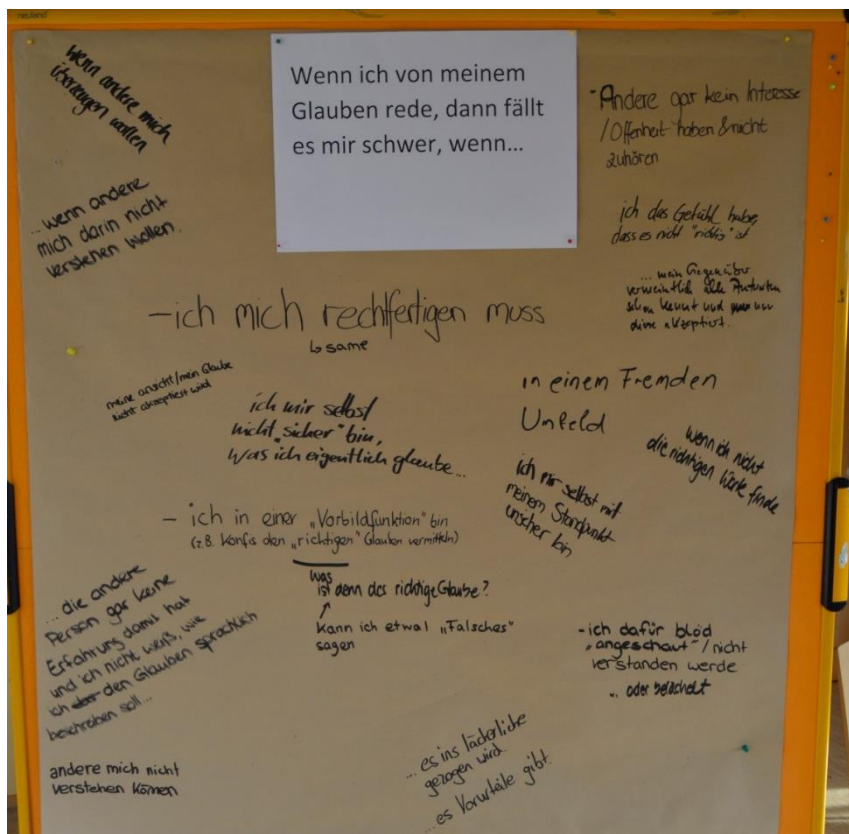 neuland
Wenn ich von meinem
Glauben rede, dann fällt
es mir schwer, wenn...
wenn andere mich
überzeugen wollen
- Andere gar kein Interesse
/Offenheit haben & nicht
zuhören
...wenn andere
mich darin nicht
verstehen wollen.
ich das Gefühl habe,
dass es nicht "richtig" ist
... mein Gegenüber
vermeintlich alle Antworten
schon kennt und nur
diese akzeptiert.
-ich mich rechtfertigen muss
↳ same
meine ansicht/mein Glaube
nicht akzeptiert wird
ich mir selbst
nicht "sicher" bin,
was ich eigentlich glaube...
in einem Fremden
Umfeld
wenn ich nicht
die richtigen Worte finde
ich mir selbst mit
meinem Standpunkt
unsicher bin
- ich in einer „Vorbildfunktion" bin
(z.B. Konfis den „richtigen" Glauben vermitteln)
Was
ist denn der richtige Glaube?
↑
Kann ich etwas „Falsches"
sagen
... die andere
Person gar keine
Erfahrung damit hat
und ich nicht weiß, wie
ich den Glauben sprachlich
beschreiben soll...
-ich dafür blöd
„angeschaut"/nicht
verstanden werde
... oder belächelt
andere mich nicht
verstehen können
...es ins lächerliche
gezogen wird.
...es Vorurteile gibt.